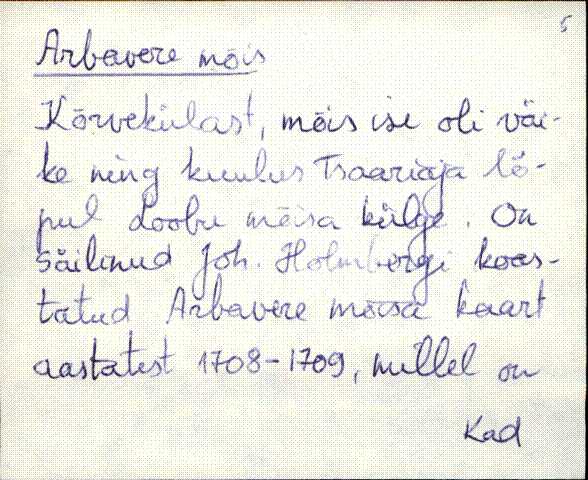 5
Arbavere mõis
Kõrvekülast, mõis ise oli väi-
ke ning kuulus Tsaariaja lõ-
pul Loobu mõisa külge. On
säilinud Joh. Holmbergi koos-
tatud Arbavere mõisa kaart
aastatest 1708-1709, millel on
Kad